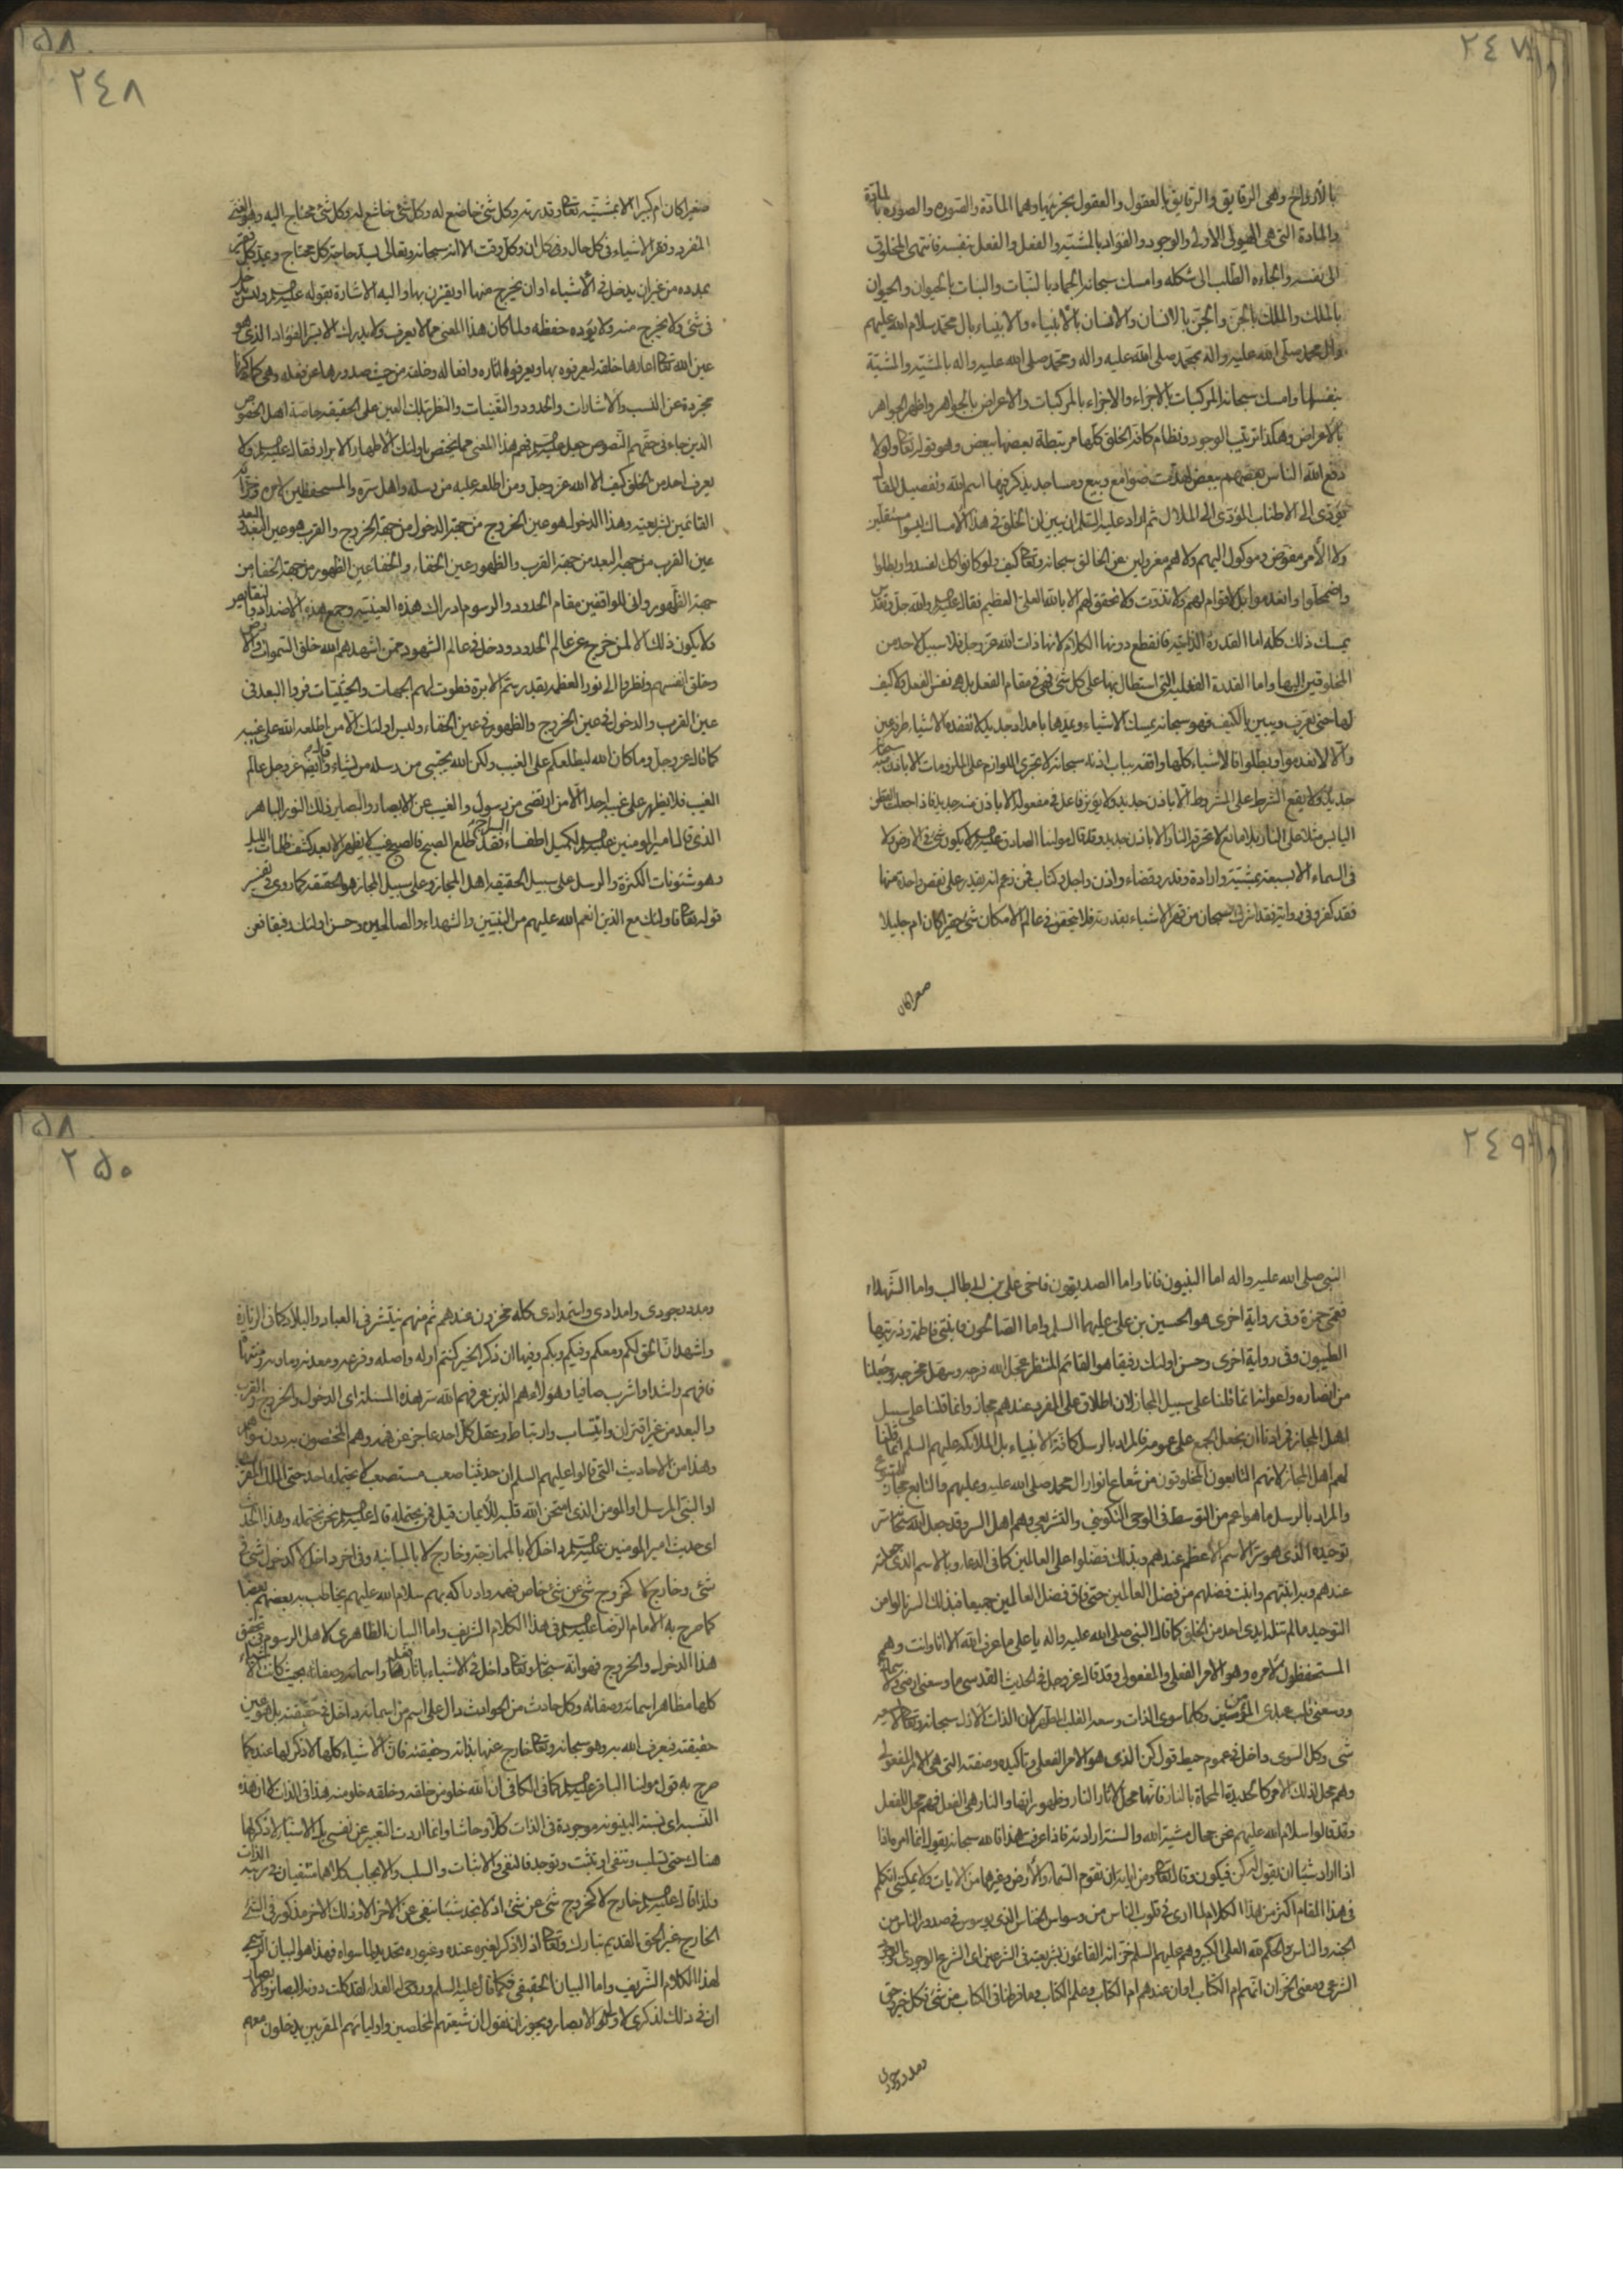 ٢٤٧
بالأرواح وهى الرقايق والرقايق بالعقول والعقول بجزئيها وهما المادة والصورة والصورة بالمادة
والمادة التى هى الهيولى الاولى والوجود والفؤاد بالمشية والفعل والفعل بنفسه فانتهى المخلوق
الى نفسه والجاءه الطلب الى شكله وامسك سبحانه الجماد بالنبات والنبات بالحيوان والحيوان
بالملك والملك بالجن والجن بالانسان والانسان بالأنبياء والانبياء بال محمد سلام الله عليهم
وال محمد صلى الله عليه واله بمحمد صلى الله عليه واله ومحمد صلى الله عليه واله بالمشية والمشية
بنفسها وامسك سبحانه المركبات بالاجزاء والاجزاء بالمركبات والاعراض بالجواهر واظهر الجواهر
بالاعراض وهكذا ترتيب الوجود ونظام كافة الخلق كلها مرتبطة بعضها ببعض وهو قوله تعالى ولولا
دفع الله الناس بعضهم ببعض لهدمت صوامع وبيع ومساجد يذكر فيها اسم الله وتفصيل المقام
يؤدى الى الاطناب المؤدى الى الملال ثم اراد عليه السلام ان يبين ان الخلق فى هذا الامساك ليسوا مستقلين
ولا الأمر مفوض وموكول اليهم ولا هم معزولين عن الخالق سبحانه وتعالى كيف ولو كانوا كك لفسدوا وبطلوا
واضمحلوا وانعدموا بل لا قوام لهم ولا تذوت ولا تحقق لهم الا بالله العلى العظيم فقال عليه السلم والله جل وتقدس
يمسك ذلك كله اما القدرة الذاتية فانقطع دونها الكلام لانها ذات الله عز وجل فلا سبيل لاحد من
المخلوقين اليها واما القدرة الفعلية التى استطال بها على كل شئ فهى فى مقام الفعل بل هى نفس الفعل ولا كيف
لها حتى تعرف ويبين بالكيف فهو سبحانه يمسك الاشياء ويمدها بامداد جديد لا تفقده الاشياء طرفة عين
والا لانعدموا وبطلوا فالاشياء كلها واقفة بباب اذنه سبحانه لا تجرى اللوازم على الملزومات الا باذنه سبحانه
جديد ولا يقع الشرط على المشروط الا باذن جديد ولا يؤثر فاعل فى مفعوله الا باذن منه جديد فاذا جعلت القطن
اليابس مثلا على النار بلا مانع لا تحرقه النار الا باذن جديد وقد قال مولينا الصادق عليه السلم لا يكون شئ فى الارض ولا
فى السماء الا بسبعة بمشية وارادة وقدر وقضاء واذن واجل وكتاب فمن زعم انه يقدر على نقص واحدة منها
فقد كفر وفى رواية فقد اشرك سبحان من قهر الاشياء بقدرته فلا يتحقق فى عالم الامكان شئ حقيرا كان ام جليلا
صغيرا كان
٢٤٨
صغيرا كان ام كبيرا الا بمشيته تعالى وقدرته وكل شئ خاضع له وكل شئ خاشع له وكل شئ محتاج اليه وهو الغنى
المفرد وفقر الاشياء فى كل حال وفى كل ان وكل وقت الا انه سبحانه وتعالى يسد حاجة كل محتاج ويمد كل فقير
بمدده من غير ان يدخل فى الأشياء او ان يخرج عنها او يقترن بها واليه الاشارة بقوله عليه السلم وليس يدخل
فى شئ ولا يخرج منه ولا يؤده حفظه ولما كان هذا المعنى مما لا يعرف ولا يدرك الا بسر الفؤاد الذى هو
عين الله تعالى اعارها خلقه ليعرفوه بها ويعرفوا اثاره وافعاله وخلقه من حيث صدورها عن فعله وهى كما كانت
مجردة عن النسب والاشارات والحدود والتعينات والنظر بتلك العين على الحقيقة خاصة اهل الخصوص
الذين جاء فى حقهم النصوص جعل عليه السلم فهم هذا المعنى مما يختص باولئك الأطهار الابرار فقال عليه السلم ولا
يعرف احد من الخلق كيف الا الله عز وجل ومن اطلعه عليه من رسله واهل سره والمستحفظين لامره وخزانه
القائمين بشريعته وهذا الدخول هو عين الخروج من جهة الدخول من جهة الخروج والقرب هو عين البعد والبعد
عين القرب من جهة البعد من جهة القرب والظهور عين الخفاء والخفاء عين الظهور من جهة الخفاء من
جهة الظهور وانى للواقفين مقام الحدود والرسوم ادراك هذه العينية وجمع هذه الاضداد والنقايض
فلا يكون ذلك الا لمن خرج عن عالم الحدود ودخل فى عالم الشهود ممن اشهدهم الله خلق السموات والارض
وخلق انفسهم ونظروا الى نور العظمة بقدر سم الابرة فطوت لهم الجهات والحيثيات فراوا البعد فى
عين القرب والدخول فى عين الخروج والظهور فى عين الخفاء وليس اولئك الا من اطلعه الله على غيبه
كما قال عز وجل وما كان الله ليطلعكم على الغيب ولكن الله يجتبى من رسله من يشاء وقال ايضا عز وجل عالم
الغيب فلا يظهر على غيبه احدا الا من ارتضى من رسول والغيب عن الابصار والبصاير ذلك النور الباهر
الذى قال امير المومنين عليه السلم لكميل اطفاء السراج فقد طلع الصبح فالصبح غيب لا يظهر الا بعد كشف ظلمات الليل
وهو شئونات الكثرة والرسل على سبيل الحقيقة اهل المجاز وعلى سبيل المجاز هو الحقيقة كما روى فى تفسير
قوله تعالى فاولئك مع الذين انعم الله عليهم من النبيين والشهداء والصالحين وحسن اولئك رفيقا فعن
٢٤٩
النبى صلى الله عليه واله اما النبيون فانا واما الصديقون فاخى على بن ابى طالب واما الشهداء
فعمى حمزة وفى رواية اخرى هو الحسين بن على عليهما السلم واما الصالحون فابنتى فاطمة وذريتها
الطيبون وفى رواية اخرى وحسن اولئك رفيقا هو القائم المنتظر عجل الله فرجه وسهل مخرجه وجعلنا
من انصاره واعوانه انما قلنا على سبيل المجاز لان اطلاق على المفرد عندهم مجاز وانما قلنا على سبيل
اهل المجاز فى ارادتنا ان نجعل الجمع على عمومه فالمراد بالرسل كافة الانبياء بل الملائكة عليهم السلم انما قلنا
لهم اهل المجاز لانهم التابعون المخلوقون من شعاع انوار ال محمد صلى الله عليه وعليهم والتابع مجاز للمتبوع
والمراد بالرسل ما هو اعم من التوسط فى الوحى التكوينى والتشريعى وهم اهل السر وقد جعل الله سبحانه سر
توحيده الذى هو سر الاسم الأعظم عندهم وبذلك فضلوا على العالمين كما فى الدعاء وبالاسم الذى جعلته
عندهم وبه ابنتهم وابنت فضلهم من فضل العالمين حتى فاق فضل العالمين جميعا فبذلك السر نالوا من
التوحيد ما لم تنله ايدى احد من الخلق كما قال النبى صلى الله عليه واله يا على ما عرف الله الا انا وانت وهم
المستحفظون لامره وهو الامر الفعلى والمفعولى وقد قال عز وجل فى الحديث القدسى ما وسعنى ارضى ولا سمائى
ووسعنى قلب عبدى المؤمن وكلما سوى الذات وسعه القلب الطاهر لان الذات الازل سبحانه وتعالى لا يسعه
شئ وكل السوى داخل فى عموم حيطة قول كن الذى هو الامر الفعلى وتاكيده وصفته التى هى الامر المفعولى
وهم محل لذلك الامر كالحديدة المحماة بالنار فانها محل لاثار النار وظهوراتها والنار هى الفعل فهم محل للفعل
وقد قالوا سلام الله عليهم نحن محال مشية الله والسنة ارادته فاذا عرفت هذا فالله سبحانه يقول انما امره اذا
اذا اراد شيئا ان يقول له كن فيكون وقال تعالى ومن اياته ان تقوم السماء والأرض بامره وغيرها من الايات ولا يمكننى اتكلم
فى هذا المقام اكثر من هذا الكلام لما ارى فى قلوب الناس من وسواس الخناس الذى يوسوس فى صدور الناس من
الجنة والناس والحكم لله العلى الكبير وهم عليهم السلم خزانه القائمون بشريعته فى الشرعين اى الشرع الوجودى والوجود
الشرعى ومعنى الخزان انهم ام الكتاب او ان عندهم ام الكتاب وعلم الكتاب وما فرطنا فى الكتاب من شئ فكل خير وحتى
ومدد وجودى
٢٥٠
ومدد وجودى وامدادى واستمدادى كله مخزون عندهم ثم منهم ينتشر فى العباد والبلاد كما فى الزيارة
واشهد ان الحق لكم ومعكم وفيكم وبكم وفيها ان ذكر الخير كنتم اوله واصله وفرعه ومعدنه وماويه ومنتهاه
فافهم راشدا واشرب صافيا وهؤلاء هم الذين عرفهم الله سر هذه المسئلة اى الدخول والخروج والقرب
والبعد من غير اقتران وانتساب وارتباط وعقل كل احد عاجز عن فهمه وهم المخصوصون به دون سواهم
وهذا من الاحاديث التى قالوا عليهم السلم ان حديثنا صعب مستصعب لا يحتمله احد حتى الملك المقرب
او النبى المرسل او المومن الذى امتحن الله قلبه للأيمان قيل فمن يحتمله قال عليه السلم نحن نحتمله وهذا الحديث
اى حديث امير المومنين عليه السلم داخل لا بالممازجة وخارج لا بالمباينة وفى اخر داخل لا كدخول شئ فى
شئ وخارج لا كخروج شئ عن شئ خاص فهمه وادراكه بهم سلام الله عليهم يخاطب به بعضهم بعضا
كما صرح به الامام الرضا عليه السلم فى هذا الكلام الشريف واما البيان الظاهرى لاهل الرسوم فى تحقق
هذا الدخول والخروج فهو انه سبحانه وتعالى داخل فى الاشياء باثار فعله واسمائه وصفاته بحيث كانت الاشياء
كلها مظاهر اسمائه وصفاته وكل حادث من الحوادث دال على اسم من اسمائه داخل فى حقيقته بل هو عين
حقيقته فيعرف الله به وهو سبحانه وتعالى خارج عنها بذاته وحقيقته فان الأشياء كلها لا ذكر لها عنده كما
صرح به قول مولينا الباقر عليه السلم كما فى الكافى ان الله خلو من خلقه وخلقه خلو منه هذا فى الذات لا ان هذه
النسبة اى نسبة البينونة موجودة فى الذات كلا وحاشا وانما اردت التعبير عن نفسى بل الاشياء لا ذكر لها
هناك حتى تسلب وتنفى او تثبت وتوجد فالنفى والاثبات والسلب والايجاب كلاهما منفيان فى رتبة الذات
ولذا قال عليه السلم خارج لا كخروج شئ عن شئ اذ لا يجد شيئا ينفى عن الاخر الا وذلك الاخر مذكور فى الشئ
الخارج غير الحق القديم تبارك وتعالى اذ لا ذكر لغيره عنده وغيوره تحديد لما سواه فهذا هو البيان الرسمى
لهذا الكلام الشريف واما البيان الحقيقى فكما قال عليه السلم وروحى له الفداء لقد كلت دونه البصائر والابصار
ان فى ذلك لذكرى لاولى الابصار ويجوز ان نقول ان شيعتهم المخلصين واوليائهم المقربين يدخلون معهم